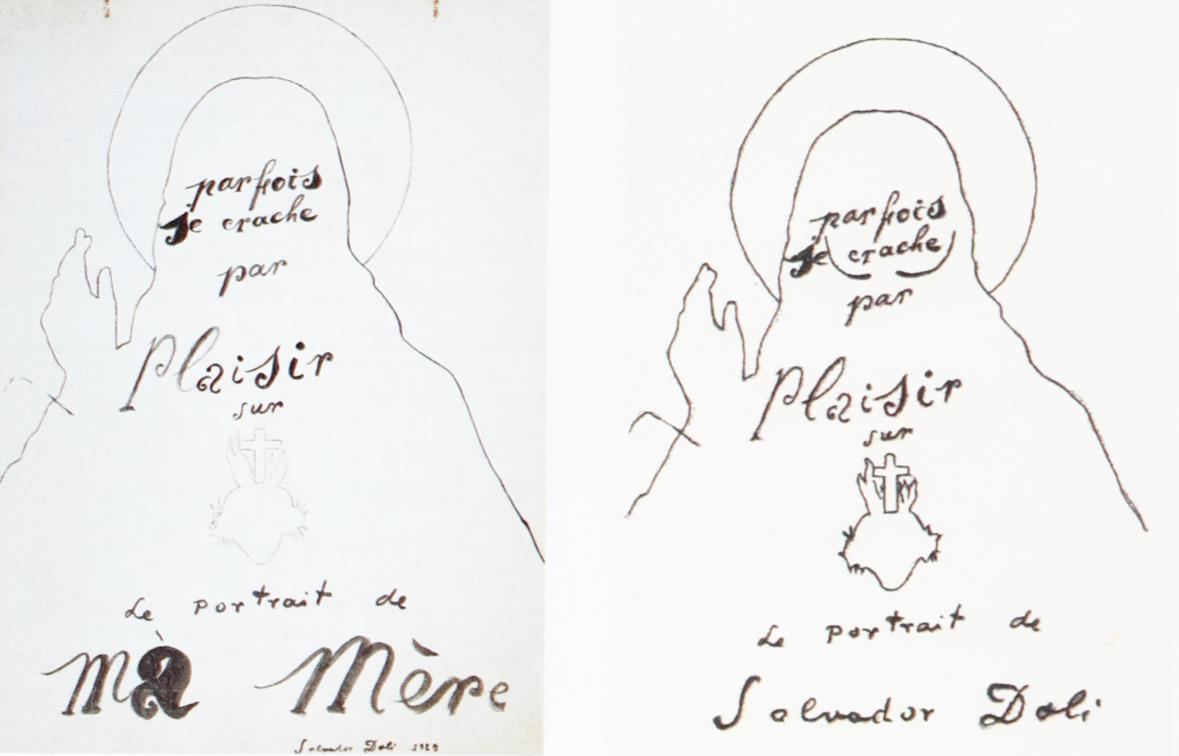 parfois
Je crache
par
Plaisir
sur
Le portrait de
ma Mère
Salvador Dali 1929
parfois
Je crache
par
Plaisir
sur
Le portrait de
Salvador Dali